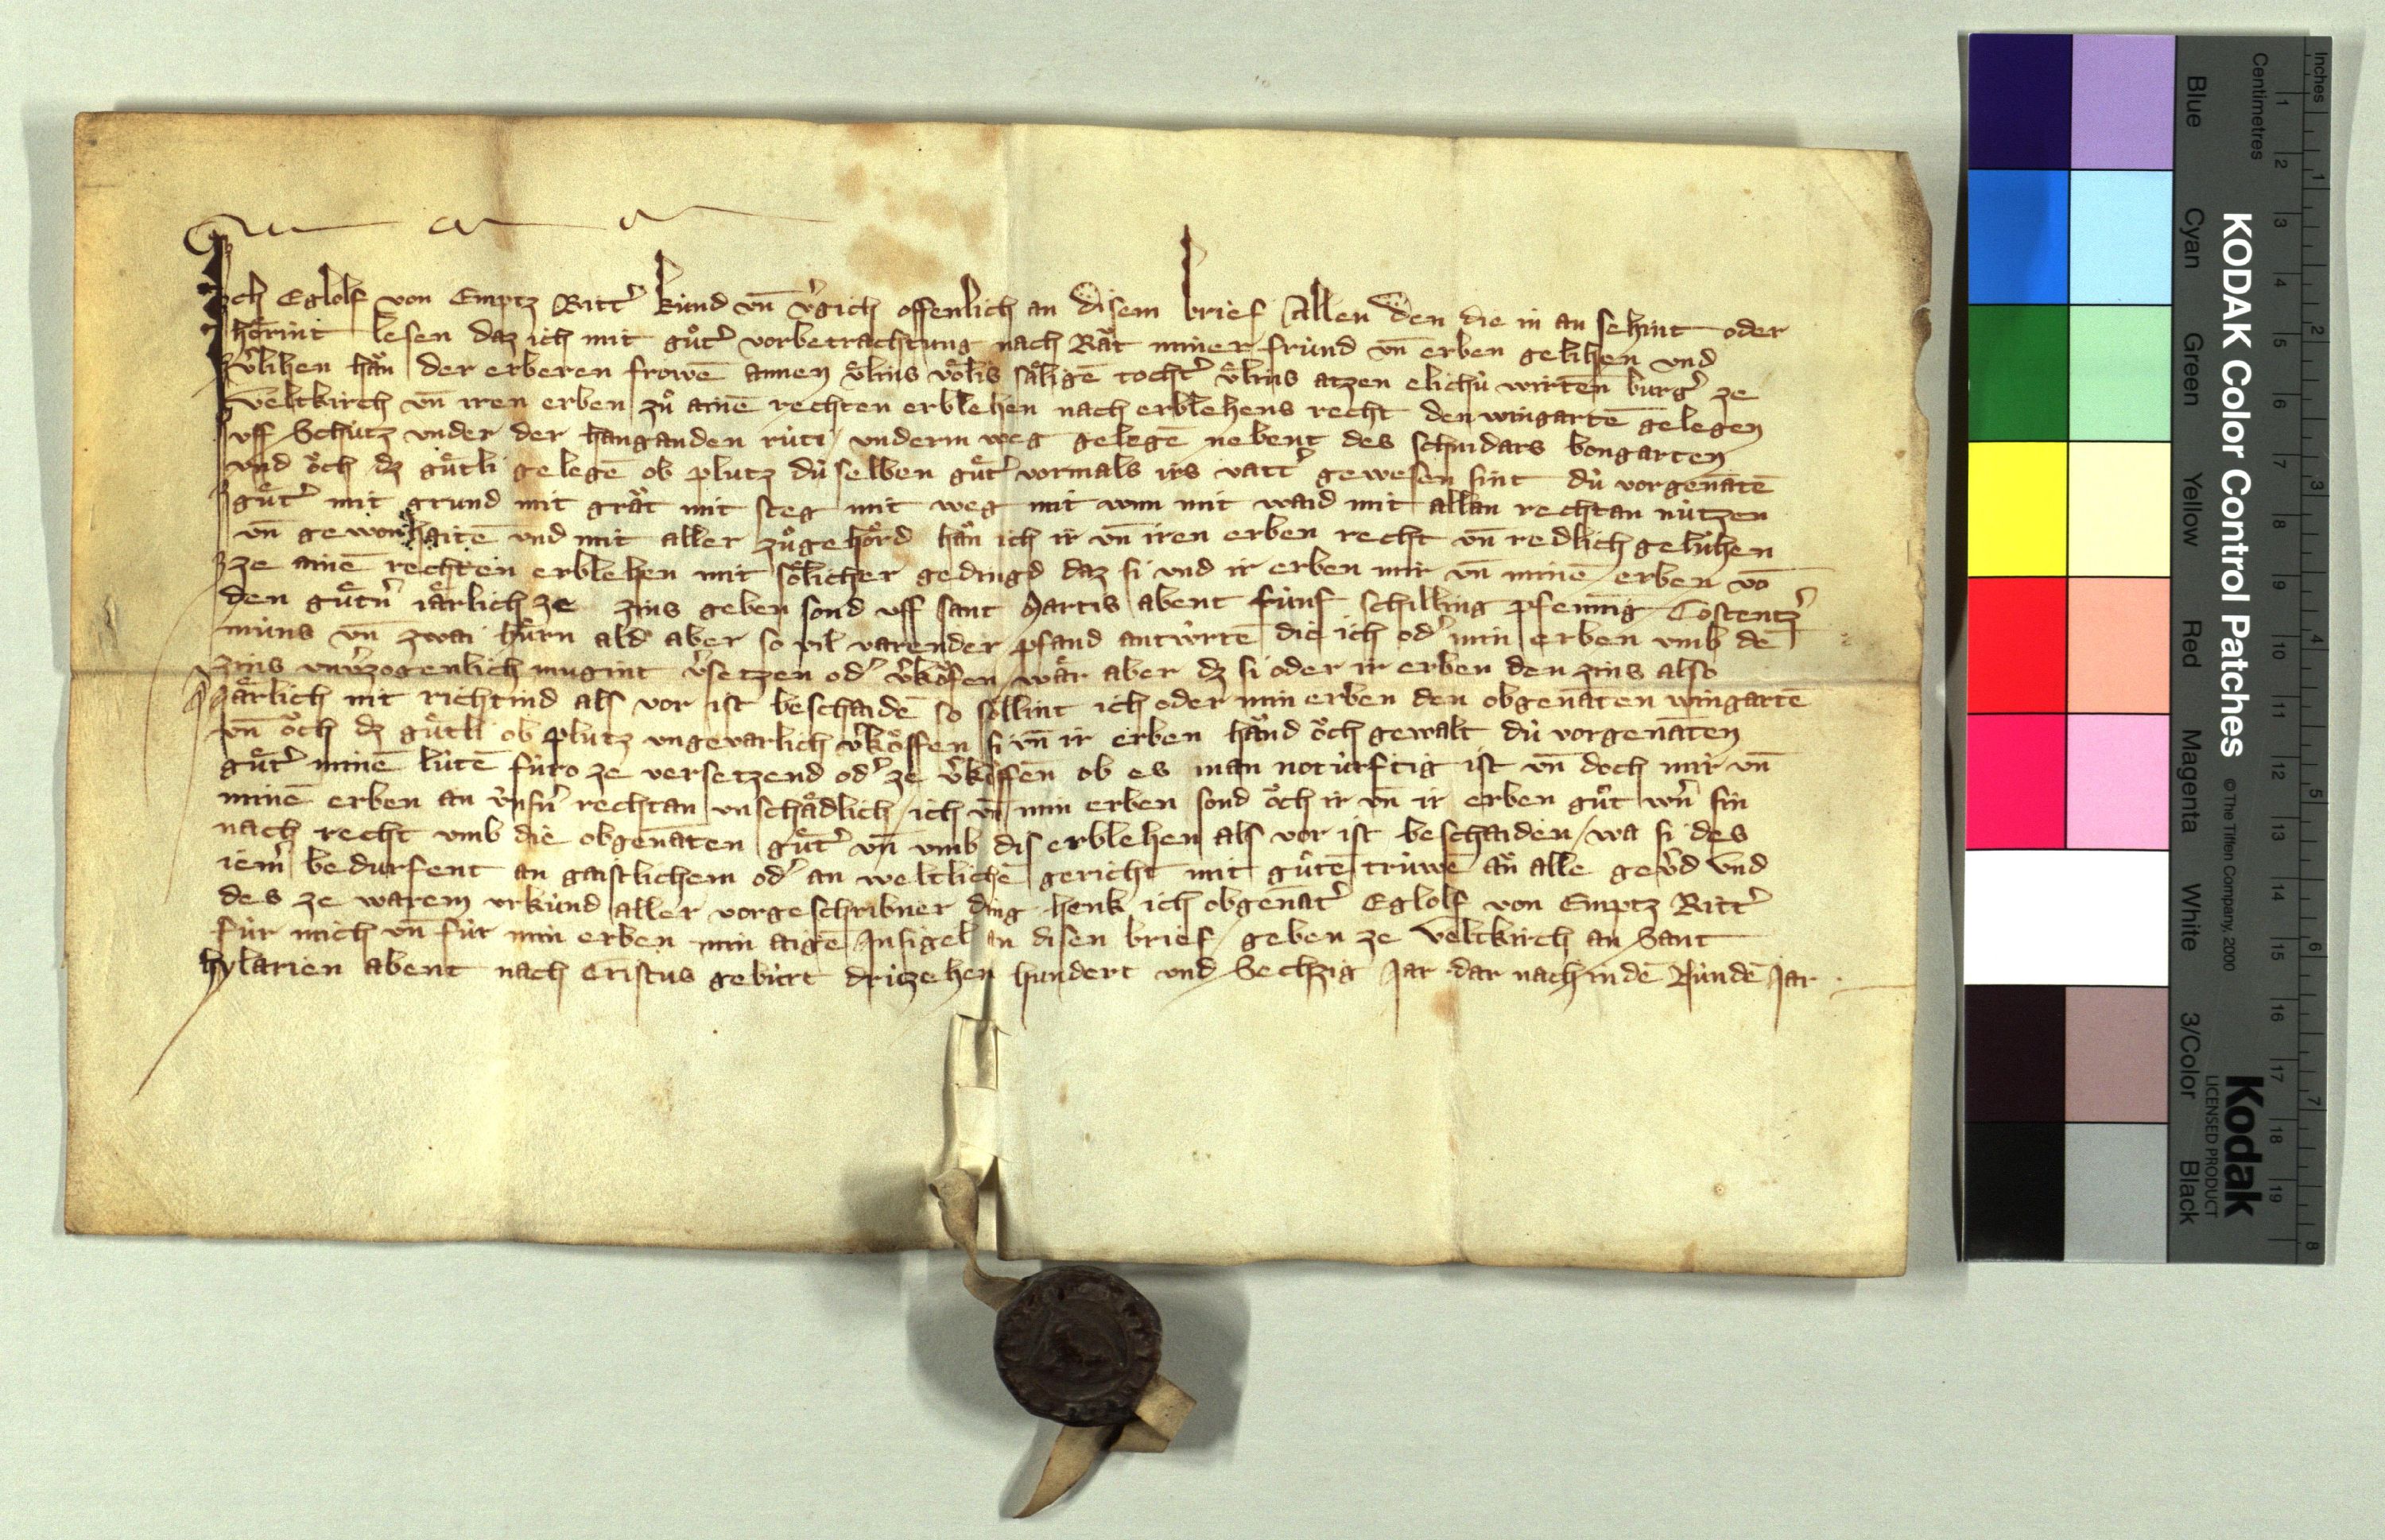 Ich Eglolf von Emptz Ritt͛ kúnd vn̄ v͛gich offenlich an disem brief Allen den die in an sehint oder
hoͤrint lesen daz ich mit guͦt͛ vorbetrachtung nach Raͮt miner frúnd vn̄ erben gelihen vnd
v͛lihen haͮn der erberen frowē annen vͤlins voͤlis saͤligē tocht͛ vͤlins atzen elichú wirten burg͛ ze
veltkirch vn̄ iren erben zuͦ ainē rechten erblehen nach erblehens recht den wingartē gelegen
vff Schútz vnder der hanganden rúti / vnderm weg gelegē nebent des schnidars bongarten
vnd oͮch dz guͤtli gelegē ob plutz dú selben guͤt͛ vormals irs vatt͛ gewesen sint dú vorgenātē
guͤt͛ mit grund mit graͮt mit steg mit weg mit wun mit waid mit allan rechtan nútzen
vn̄ gewonhaitē vnd mit aller zuͦgehoͤrd haͮn ich ir vn̄ iren erben recht vn̄ redlich geluhen
ze ainē rechten erblehen mit soͤlicher gedingd daz si vnd ir erben mir vn̄ minē erben vō
den guͤtn͛ iaͤrlich ze zins geben sond vff sant Martis abent fúnf schilling pfenning Costentz͛
múns vn̄ zwai huͤrn ald aber so vil varender pfand antwúrtē die ich od͛ min erben vmb dē
zins vnv͛zogenlich mugint v͛setzen od͛ v͛koͮfen waͤr aber dz si oder ir erben den zins also
jaͤrlich nit richtind als vor ist beschaidē so soͤllint ich oder min erben den obgenāten wingartē
vn̄ oͮch dz guͤtli ob plutz vngevarlich v͛koͮffen si vn̄ ir erben haͮnd oͮch gewalt dú vorgenātēn
guͤt͛ minē lútē fúro ze versetzend od͛ ze v͛koͮffen ob es inan notúrftig ist vn̄ doch mir vn̄
minē erben an vnsn͛ rechtan vnschaͤdlich / ich vn̄ min erben sond oͮch ir vn̄ ir erben guͦt wn͛ sin
nach recht vmb die obgenāten guͤt͛ vn̄ vmb dis erblehen als vor ist beschaiden / wa si des
iem͛ bedurfent an gaistlichem od͛ an weltlichē gericht mit guͦtē trúwē aͮn alle gev͛d vnd
des ze warem vrkúnd aller vorgeschribner ding henk ich obgenāt͛ Eglolf von Emptz Ritt͛
fúr mich vn̄ fúr min erben min aigē Insigel an disen brief / geben ze veltkirch an Sant
hylarien abent nach Cristus gebúrt drizehen hundert vnd Sechzig Jar dar nach in dē Núndē Jar
KODAK Color Control Patches
© The Tiffen Company, 2000
Kodak
LICENSED PRODUCT
Blue Cyan Green Yellow Red Magenta White 3/Color Black
Inches
1 2 3 4 5 6 7 8
Centimetres
1 2 3 4 5 6 7 8 9 10 11 12 13 14 15 16 17 18 19